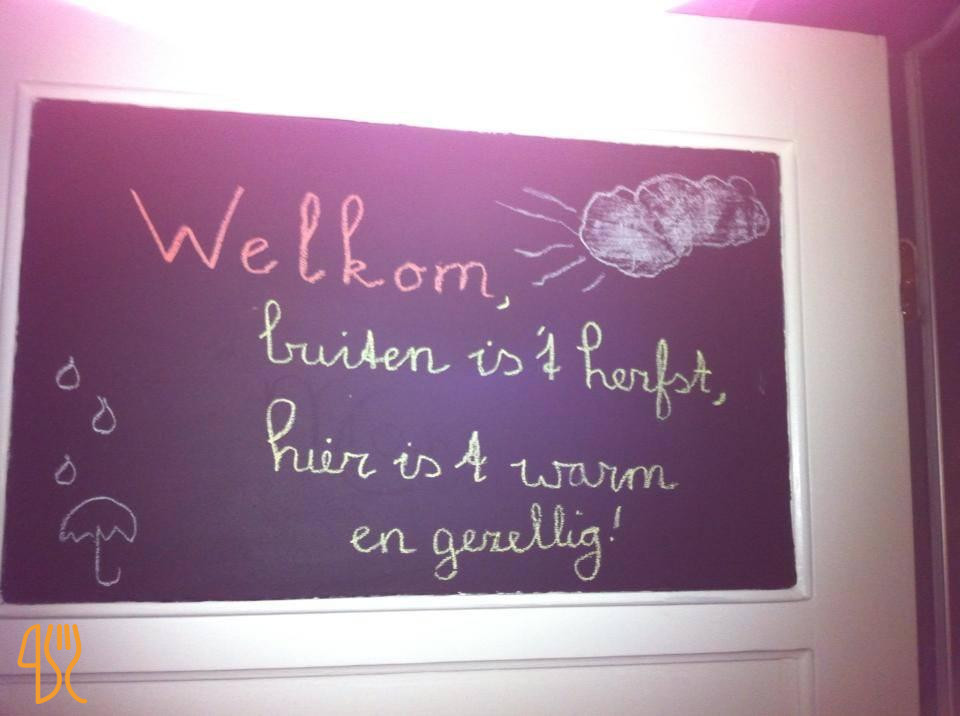 Welkom,
buiten is 't herfst,
hier is 't warm
en gezellig!